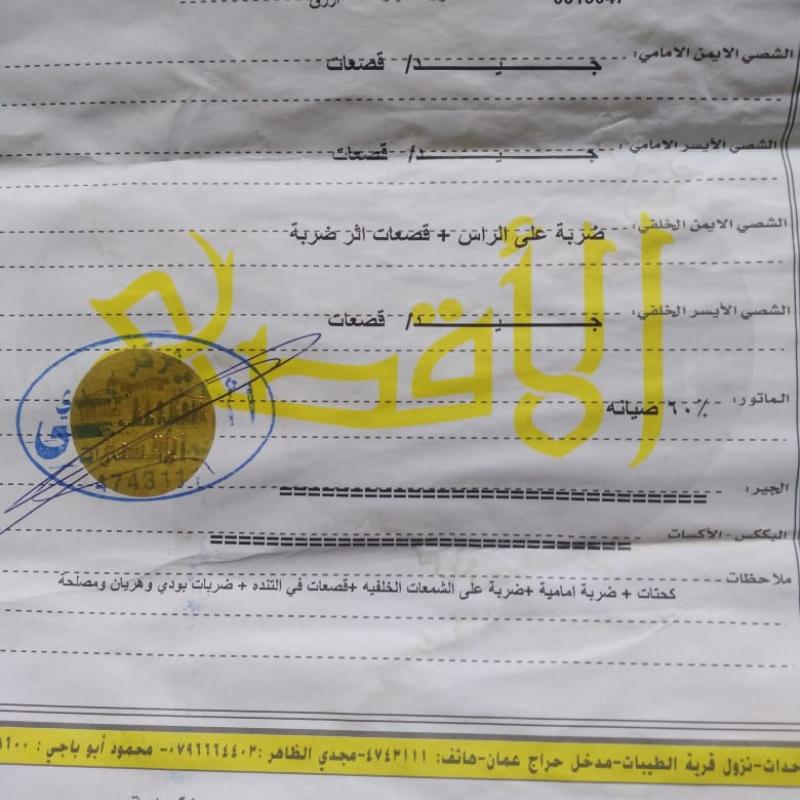 الشصي الايمن الامامي: جيد/ قصعات
الشصي الأيسر الامامي: جيد/ قصعات
الشصي الايمن الخلفي: ضربة على الراس + قصعات اثر ضربة
الشصي الأيسر الخلفي: جيد/ قصعات
الأقصى
الماتور: ٦٠٪ صيانه
4743111
الجير: ==============================
البككس - الأكسات ==============================
ملاحظات
كحتات + ضربة امامية +ضربة على الشمعات الخلفيه +قصعات في التنده + ضربات بودي وهريان ومصلحة
حدات-نزول قرية الطيبات-مدخل حراج عمان-هاتف: ٤٧٤٣١١١-مجدي الظاهر :٠٧٩٦٦٦٤٤٠٣- محمود أبو باجي :